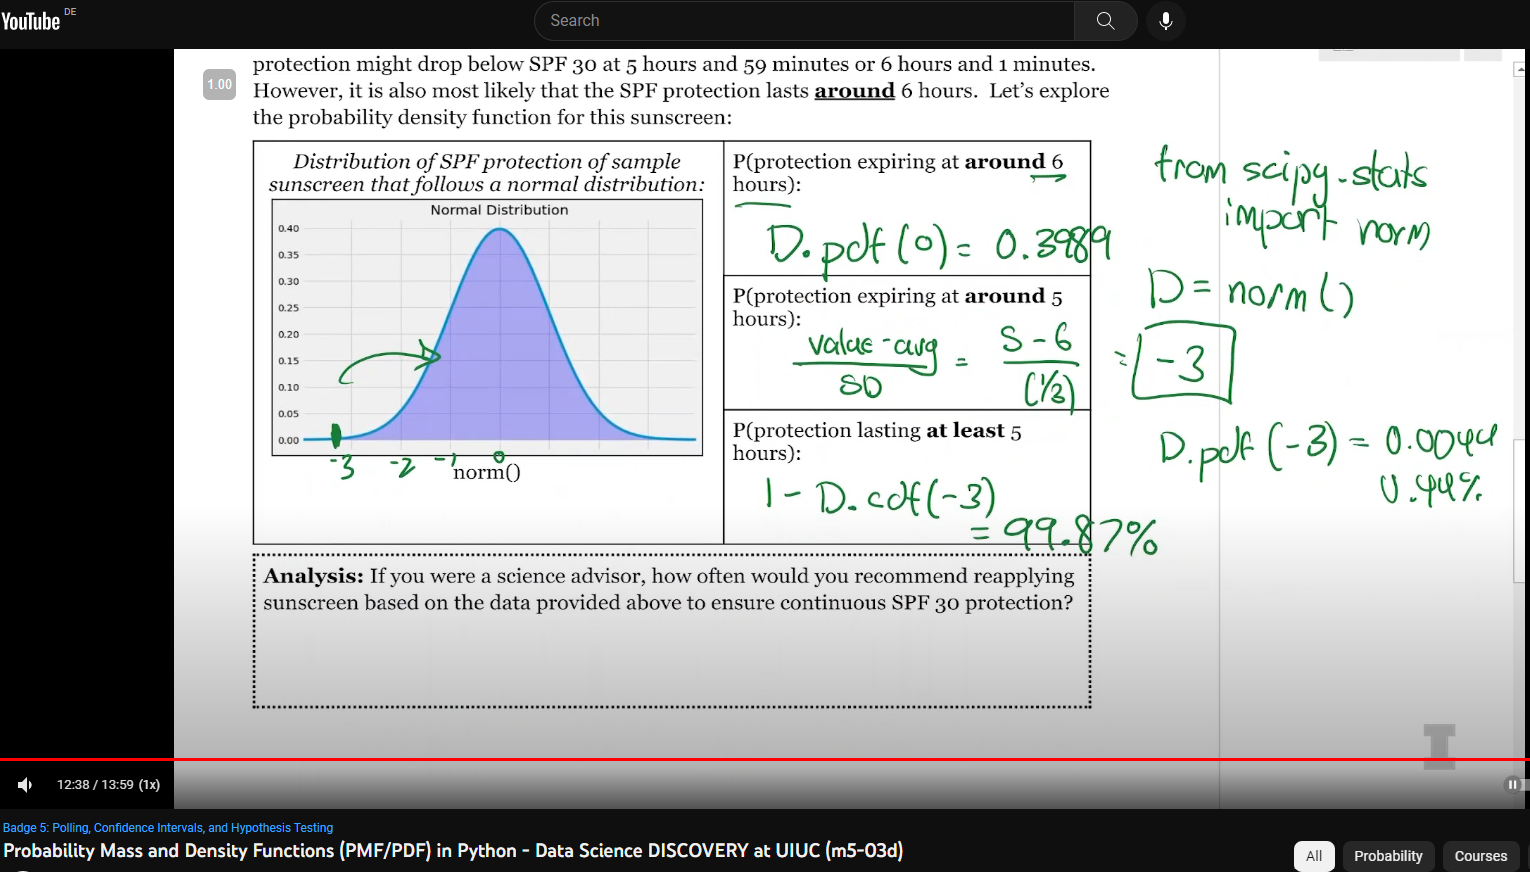 YouTube DE
Search
protection might drop below SPF 30 at 5 hours and 59 minutes or 6 hours and 1 minutes.
1.00
However, it is also most likely that the SPF protection lasts around 6 hours. Let's explore
the probability density function for this sunscreen:
Distribution of SPF protection of sample
sunscreen that follows a normal distribution:
Normal Distribution
0.40
0.35
0.30
0.25
0.20
0.15
0.10
0.05
0.00
-3 -2 -1 0
norm()
P(protection expiring at around 6
hours):
D.pdf(0) = 0.3989
P(protection expiring at around 5
hours):
value - avg / SD = 5 - 6 / (1/3) = -3
P(protection lasting at least 5
hours):
1 - D.cdf(-3)
= 99.87%
from scipy.stats
import norm
D = norm()
D.pdf(-3) = 0.0044
0.44%
Analysis: If you were a science advisor, how often would you recommend reapplying
sunscreen based on the data provided above to ensure continuous SPF 30 protection?
I
12:38 / 13:59 (1x)
Badge 5: Polling, Confidence Intervals, and Hypothesis Testing
Probability Mass and Density Functions (PMF/PDF) in Python - Data Science DISCOVERY at UIUC (m5-03d)
All Probability Courses